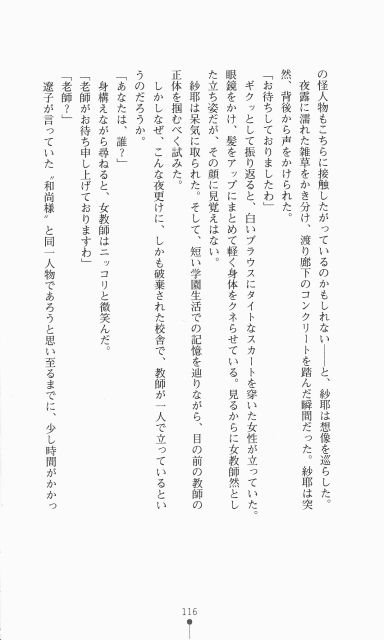 の怪人物もこちらに接触したがっているのかもしれない――と、紗耶は想像を巡らした。
夜露に濡れた雑草をかき分け、渡り廊下のコンクリートを踏んだ瞬間だった。紗耶は突
然、背後から声をかけられた。
「お待ちしておりましたわ」
ギクッとして振り返ると、白いブラウスにタイトなスカートを穿いた女性が立っていた。
眼鏡をかけ、髪をアップにまとめて軽く身体をクネらせている。見るからに女教師然とし
た立ち姿だが、その顔に見覚えはない。
紗耶は呆気に取られた。そして、短い学園生活での記憶を辿りながら、目の前の教師の
正体を掴むべく試みた。
しかしなぜ、こんな夜更けに、しかも破棄された校舎で、教師が一人で立っているとい
うのだろうか。
「あなたは、誰?」
身構えながら尋ねると、女教師はニッコリと微笑んだ。
「老師がお待ち申し上げておりますわ」
「老師?」
遼子が言っていた〝和尚様〟と同一人物であろうと思い至るまでに、少し時間がかかっ
116